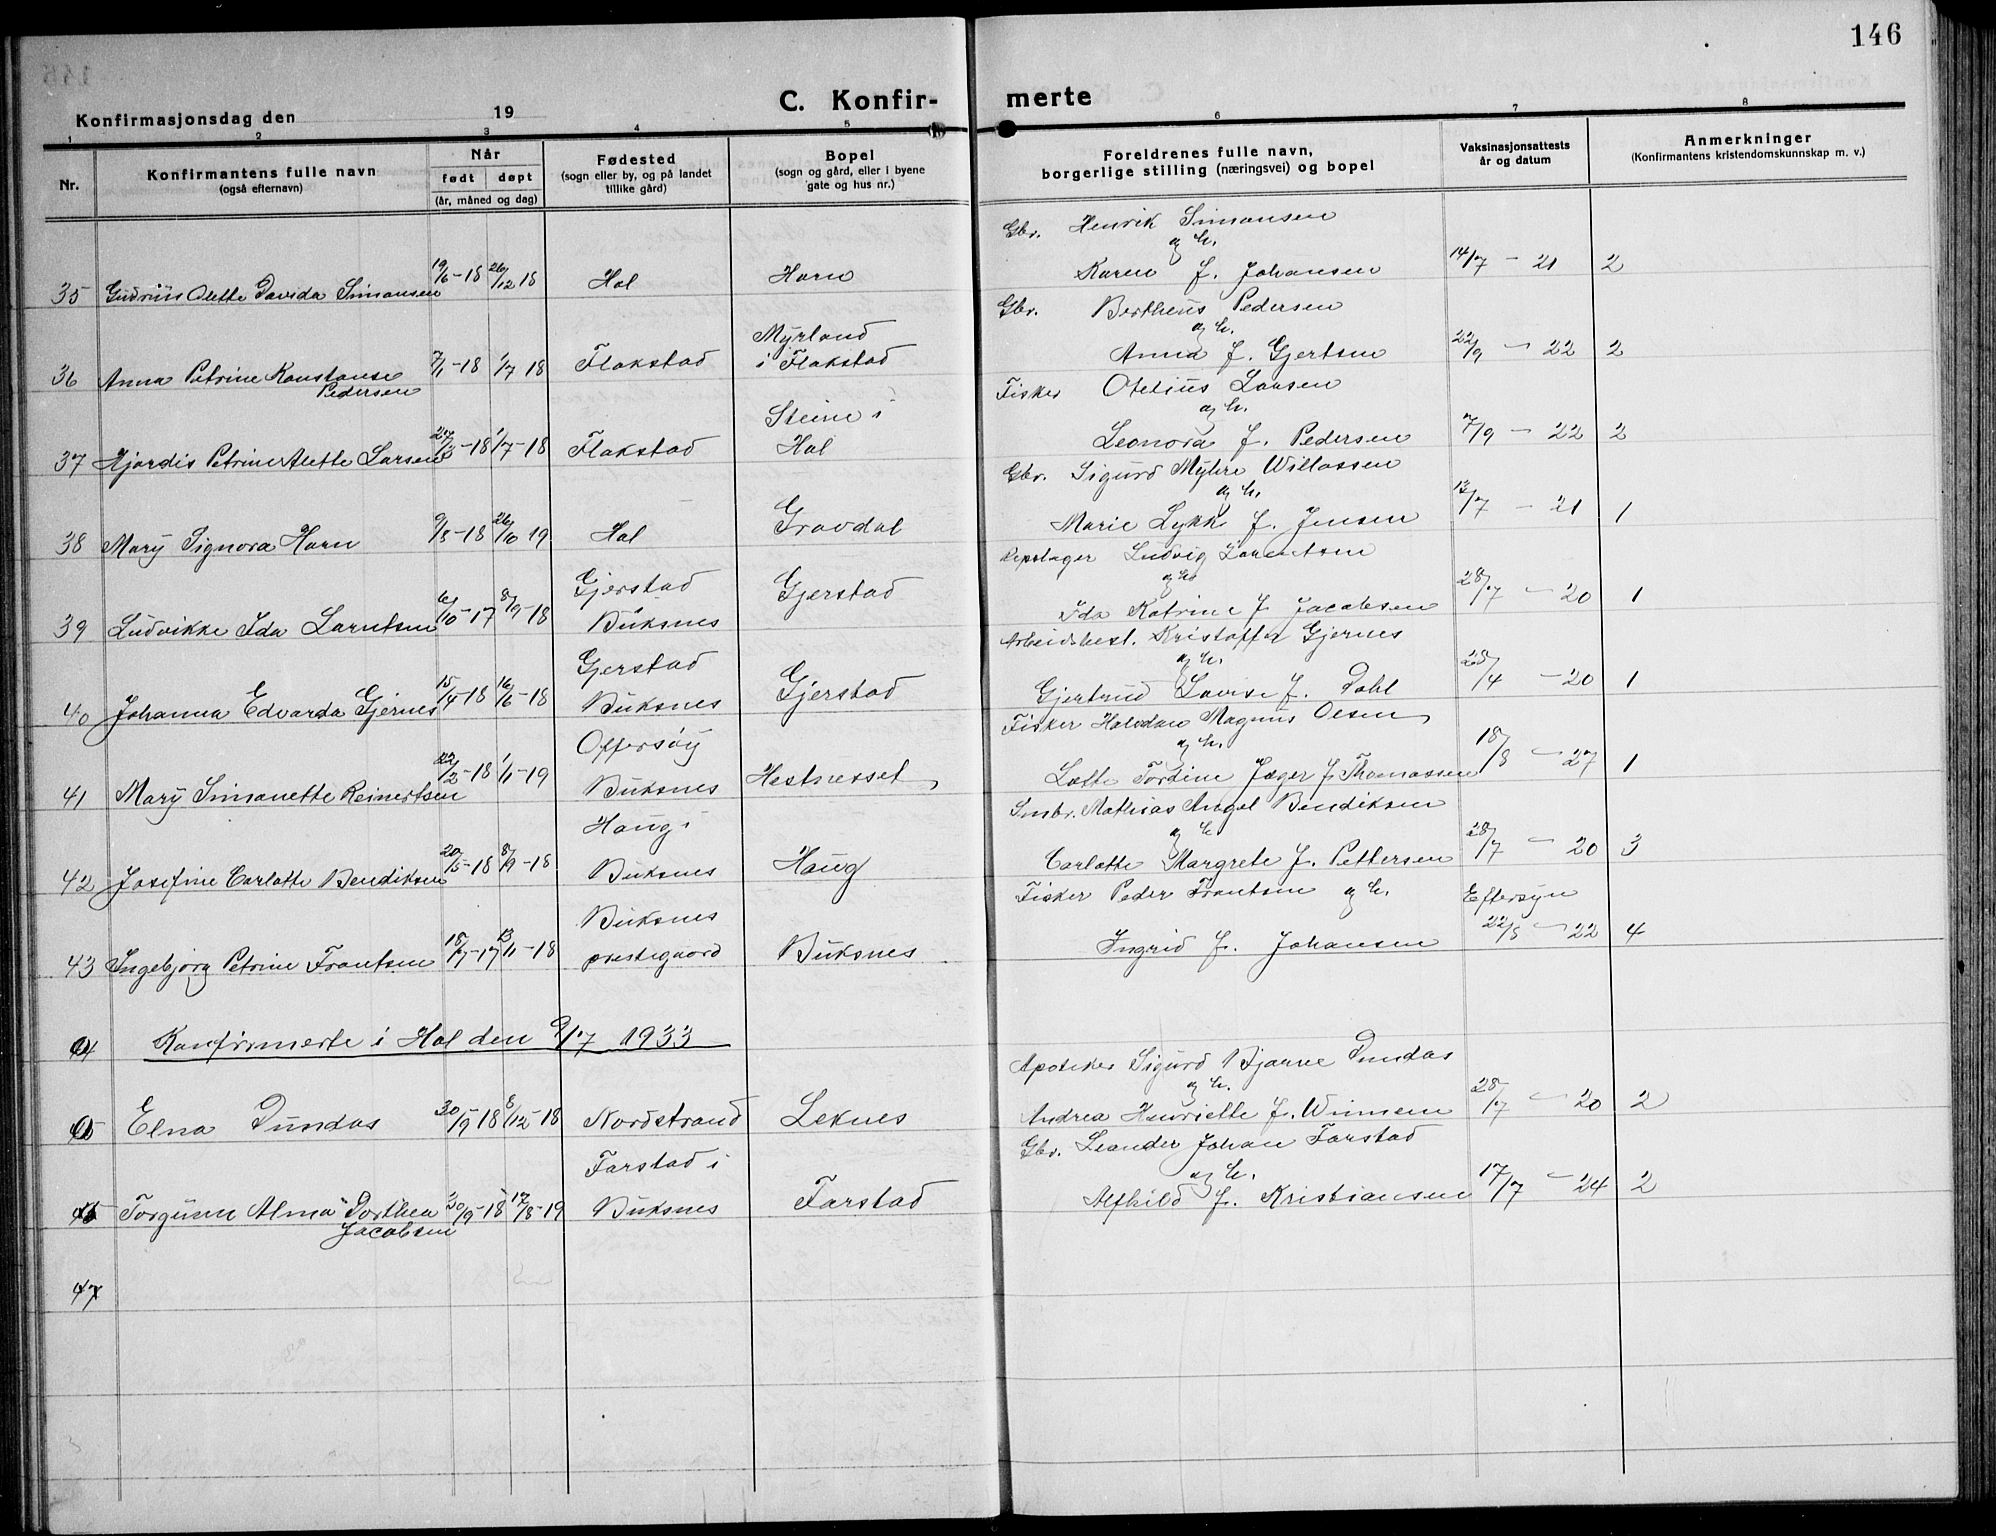 146
C. Konfir-
merte
Konfirmasjonsdag den 19
1 2 3 4 5 6 7 8
Nr.
Konfirmantens fulle navn
(også efternavn)
Når
født døpt
(år, måned og dag)
Fødested
(sogn eller by, og på landet
tillike gård)
Bopel
(sogn og gård, eller i byene
gate og hus nr.)
Foreldrenes fulle navn,
borgerlige stilling (næringsvei) og bopel
Vaksinasjonsattests
år og datum
Anmerkninger
(Konfirmantens kristendomskunnskap m. v.)
Gbr. Henrik Simonsen
og h.
35 Gudrun Olette Davida Simonsen 19/6-18 26/12 18 Hol Horn Karen f. Johansen 14/7 - 21 2
Gbr. Bertheus Pedersen
Myrland og h.
36 Anna Petrine Konstanse 7/1-18 1/7 18 Flakstad i Flakstad Anna f. Gjertsen 22/9 - 22 2
Pedersen
Fisker Otelius Larsen
Steine i og h.
37 Hjørdis Petrine Alette Larsen 27/3-18 1/7-18 Flakstad Hol Leonora f. Pedersen 7/9 - 22 2
Gbr. Sigurd Myhre Willassen
og h.
38 Mary Signora Horn 9/5-18 26/10 19 Hol Gravdal Marie Lykke f. Jensen 13/7 - 21 1
Repslager Ludvig Larentsen
Gjerstad og h.
39 Ludvikke Ida Larntsen 6/10-17 8/9-18 Buksnes Gjerstad Ida Katrine f. Jacobsen 28/7 - 20 1
Arbeidsbest. Kristoffer Gjernes
Gjerstad og h.
40 Johanna Edvarda Gjernes 15/4-18 16/6-18 Buksnes Gjerstad Gjertrud Lovise f. Dahl 28/4 - 20 1
Fisker Halvdan Magnus Olsen
Offersøy og h.
41 Mary Simonette Reinertsen 22/2-18 1/1-19 Buksnes Hestnesset Lotte Tordine Jæger f. Thomassen 18/8 - 27 1
Smbr. Mathias Angel Bendiksen
Haug i og h.
42 Josefine Carlotte Bendiksen 20/5-18 8/9-18 Buksnes Haug Carlotte Margrete f. Pettersen 28/7 - 20 3
Fisker Peder Frantsen og h. Eftersyn
Buksnes
43 Ingebjørg Petrine Frantsen 18/7-17 13/1-18 prestegaard Buksnes Ingrid f. Johansen 22/8 - 22 4
44 Konfirmerte i Hol den 9/7 1933
Apoteker Sigurd Bjarne Dundas
og h.
45 Elna Dundas 30/9-18 8/12-18 Nordstrand Leknes Andrea Henriette f. Winnem 28/7 - 20 2
Gbr. Leander Johan Farstad
Farstad i og h.
46 Torgunn Alma Dorthea 30/9-18 17/8-19 Buksnes Farstad Alfhild f. Kristiansen 17/7 - 24 2
Jacobsen
47